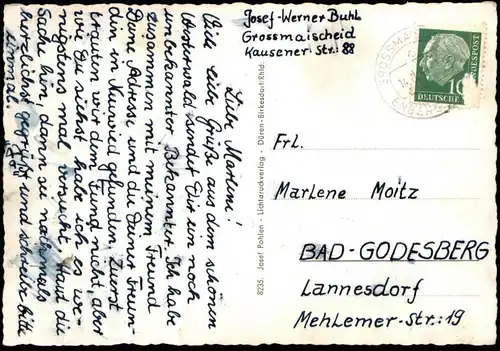 Josef-Werner Buhl
Grossmaischeid
Kausener-Str.: 88
Liebe Marlene!
Viele liebe Grüße aus dem schönen
Westerwald sendet Dir ein noch
unbekannter Bekannter. Ich habe
zusammen mit meinem Freund
Deine Adresse und die Deiner Freun-
din in Neuwied gefunden. Zuerst
trauten wir dem Fund nicht aber
wie Du siehst habe ich es we-
nigstens mal versucht. Haut die
Sache hin, dann sei nochmals
herzlichst gegrüßt und schreibe bitte
einmal.
8235. Josef Pohlen - Lichtdruckverlag - Düren-Birkesdorf/Rhld.
GROSSMAI
DEUTSCHE
BUNDESPOST
10
Frl.
Marlene Moitz
BAD-GODESBERG
Lannesdorf
Mehlemer-Str.: 19